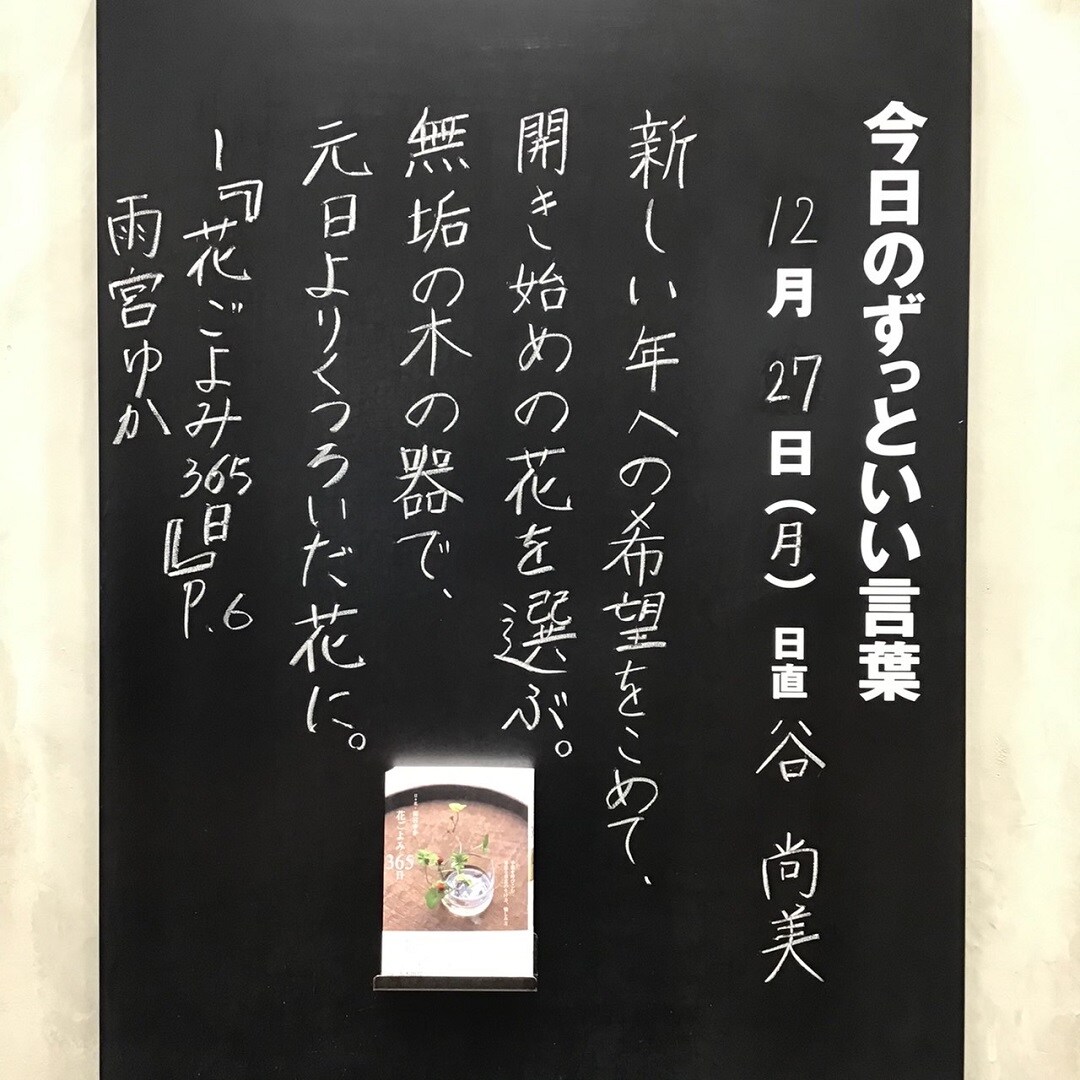 今日のずっといい言葉
12月27日(月)日直 谷 尚美
新しい年への希望をこめて、
開き始めの花を選ぶ。
無垢の木の器で、
元日よりくつろいだ花に。
ー『花ごよみ365日』P.6
雨宮ゆか
花ごよみ
365日